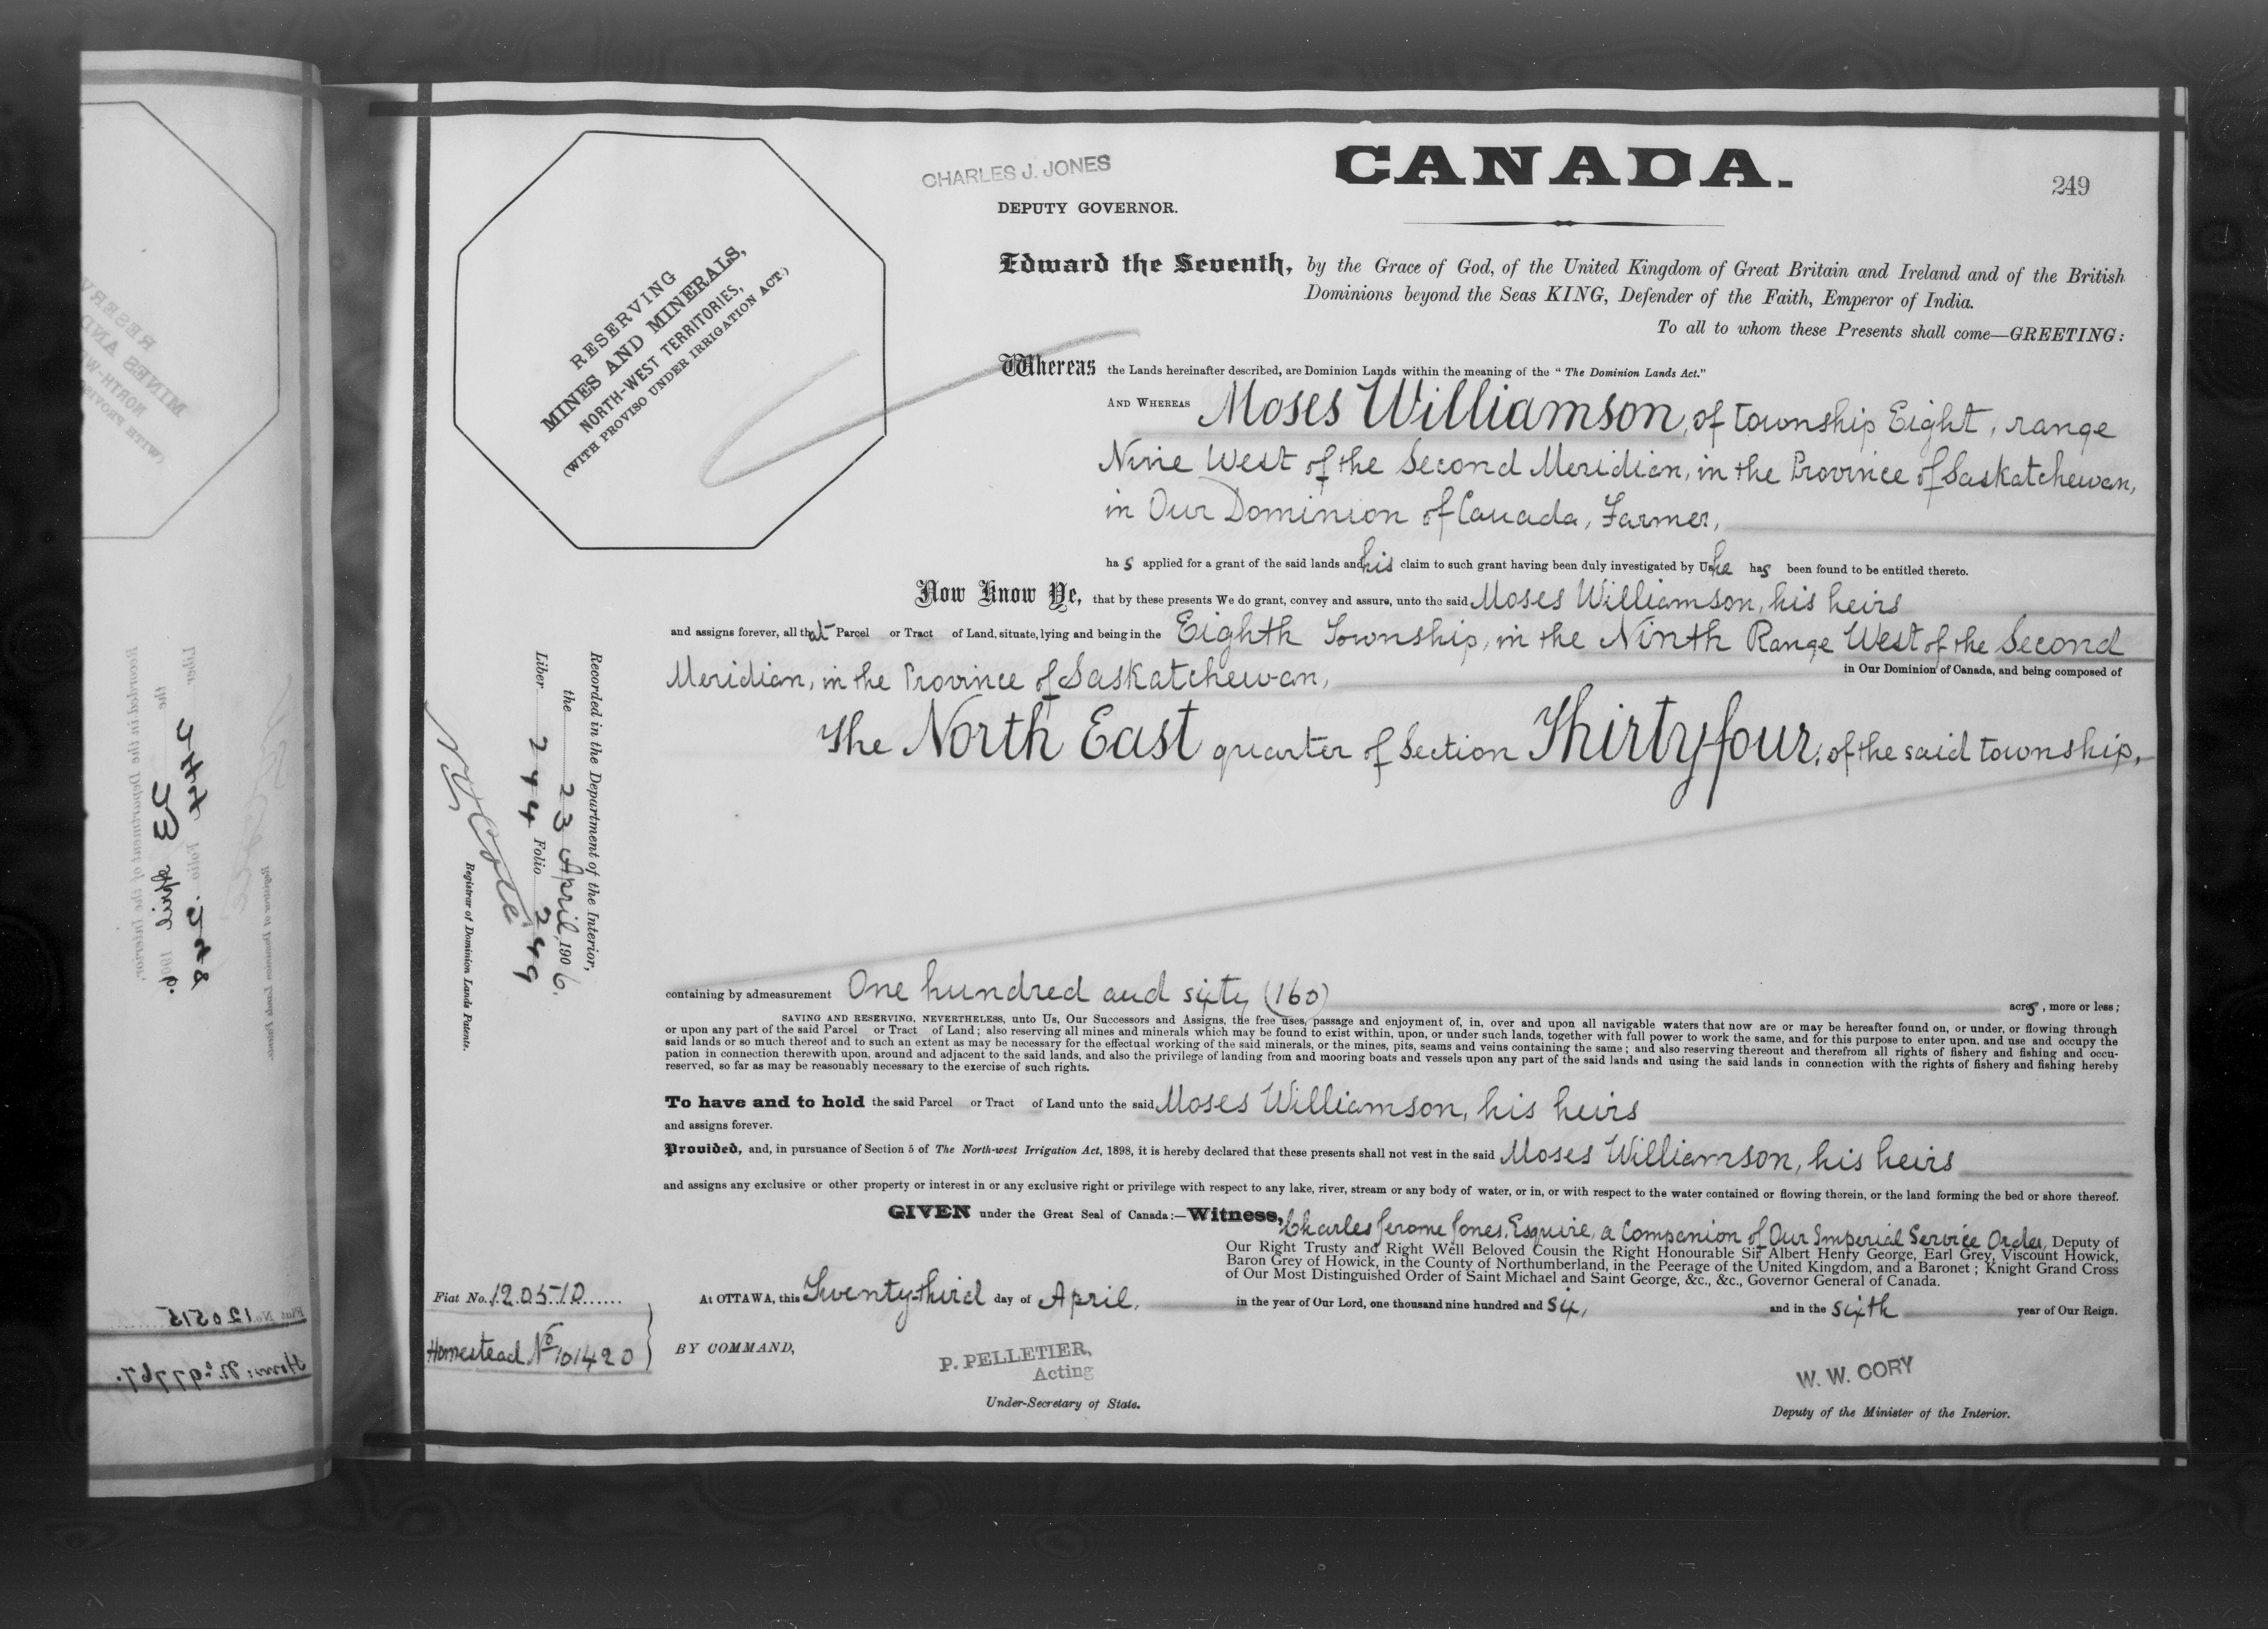 CHARLES J. JONES
CANADA.
249
DEPUTY GOVERNOR.
RESERVING
MINES AND MINERALS,
NORTH-WEST TERRITORIES,
(WITH PROVISO UNDER IRRIGATION ACT.)
Edward the Seventh, by the Grace of God, of the United Kingdom of Great Britain and Ireland and of the British
Dominions beyond the Seas KING, Defender of the Faith, Emperor of India.
To all to whom these Presents shall come—GREETING:
Whereas the Lands hereinafter described, are Dominion Lands within the meaning of the "The Dominion Lands Act."
AND WHEREAS Moses Williamson, of township Eight, range
Nine West of the Second Meridian, in the Province of Saskatchewan,
in Our Dominion of Canada, Farmer,
has applied for a grant of the said lands and his claim to such grant having been duly investigated by Us he has been found to be entitled thereto.
Now Know Ye, that by these presents We do grant, convey and assure, unto the said Moses Williamson, his heirs
and assigns forever, all that Parcel or Tract of Land, situate, lying and being in the Eighth Township, in the Ninth Range West of the Second
Meridian, in the Province of Saskatchewan, in Our Dominion of Canada, and being composed of
The North East quarter of Section Thirty four, of the said township,
Recorded in the Department of the Interior,
the 23 April, 1906.
Liber 244 Folio 249
Registrar of Dominion Lands Patents.
containing by admeasurement One hundred and sixty (160) acres, more or less;
SAVING AND RESERVING, NEVERTHELESS, unto Us, Our Successors and Assigns, the free uses, passage and enjoyment of, in, over and upon all navigable waters that now are or may be hereafter found on, or under, or flowing through
or upon any part of the said Parcel or Tract of Land; also reserving all mines and minerals which may be found to exist within, upon, or under such lands, together with full power to work the same, and for this purpose to enter upon, and use and occupy the
said lands or so much thereof and to such an extent as may be necessary for the effectual working of the said minerals, or the mines, pits, seams and veins containing the same; and also reserving thereout and therefrom all rights of fishery and fishing and occu-
pation in connection therewith upon, around and adjacent to the said lands, and also the privilege of landing from and mooring boats and vessels upon any part of the said lands and using the said lands in connection with the rights of fishery and fishing hereby
reserved, so far as may be reasonably necessary to the exercise of such rights.
To have and to hold the said Parcel or Tract of Land unto the said Moses Williamson, his heirs
and assigns forever.
Provided, and, in pursuance of Section 5 of The North-west Irrigation Act, 1898, it is hereby declared that these presents shall not vest in the said Moses Williamson, his heirs
and assigns any exclusive or other property or interest in or any exclusive right or privilege with respect to any lake, river, stream or any body of water, or in, or with respect to the water contained or flowing therein, or the land forming the bed or shore thereof.
GIVEN under the Great Seal of Canada:—Witness, Charles Jerome Jones, Esquire, a Companion of Our Imperial Service Order, Deputy of
Our Right Trusty and Right Well Beloved Cousin the Right Honourable Sir Albert Henry George, Earl Grey, Viscount Howick,
Baron Grey of Howick, in the County of Northumberland, in the Peerage of the United Kingdom, and a Baronet; Knight Grand Cross
of Our Most Distinguished Order of Saint Michael and Saint George, &c., &c., Governor General of Canada.
Fiat No. 120510
At OTTAWA, this Twenty-third day of April, in the year of Our Lord, one thousand nine hundred and six, and in the sixth year of Our Reign.
Homestead No 101420
BY COMMAND,
P. PELLETIER,
Acting
Under-Secretary of State.
W. W. CORY
Deputy of the Minister of the Interior.